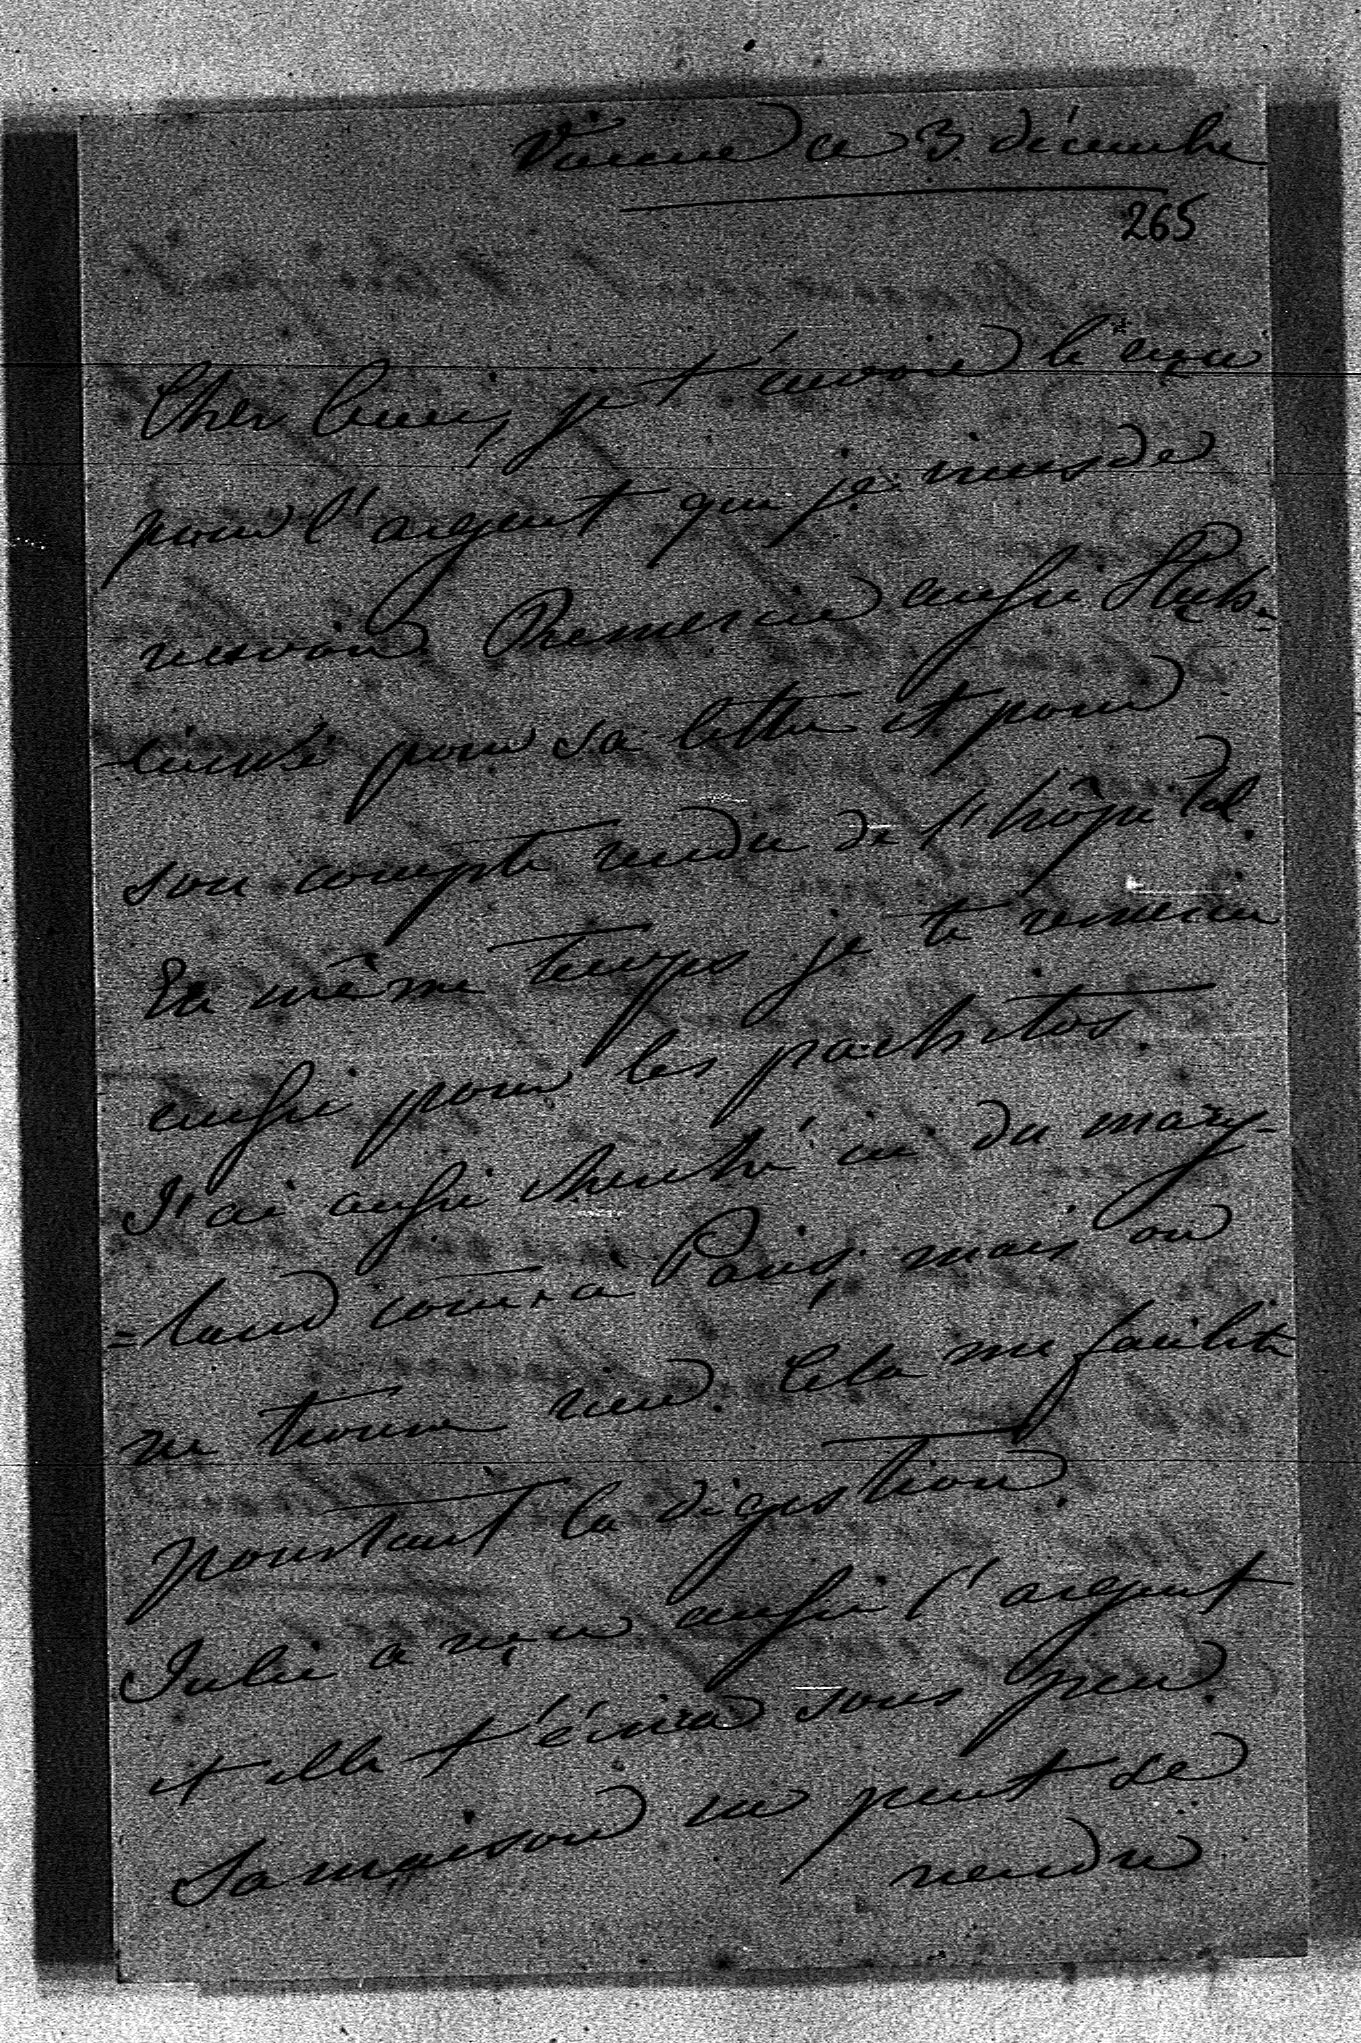 Vienne ce 3 décembre
265
Cher ami, je t'envoie le reçu
pour l'argent que je viens de
recevoir. Remercie aussi
pour sa lettre et pour
son compte rendu de l'hôpital.
En même temps je te remercie
aussi pour les pachitos.
J'ai aussi cherché ici du mary-
=land com̄ à Paris, mais on
ne trouve rien. Cela me facilite
pourtant la digestion.
Julie a reçu aussi l'argent
et elle t'écrira sous peu.
Sa maison ne peut se
vendre